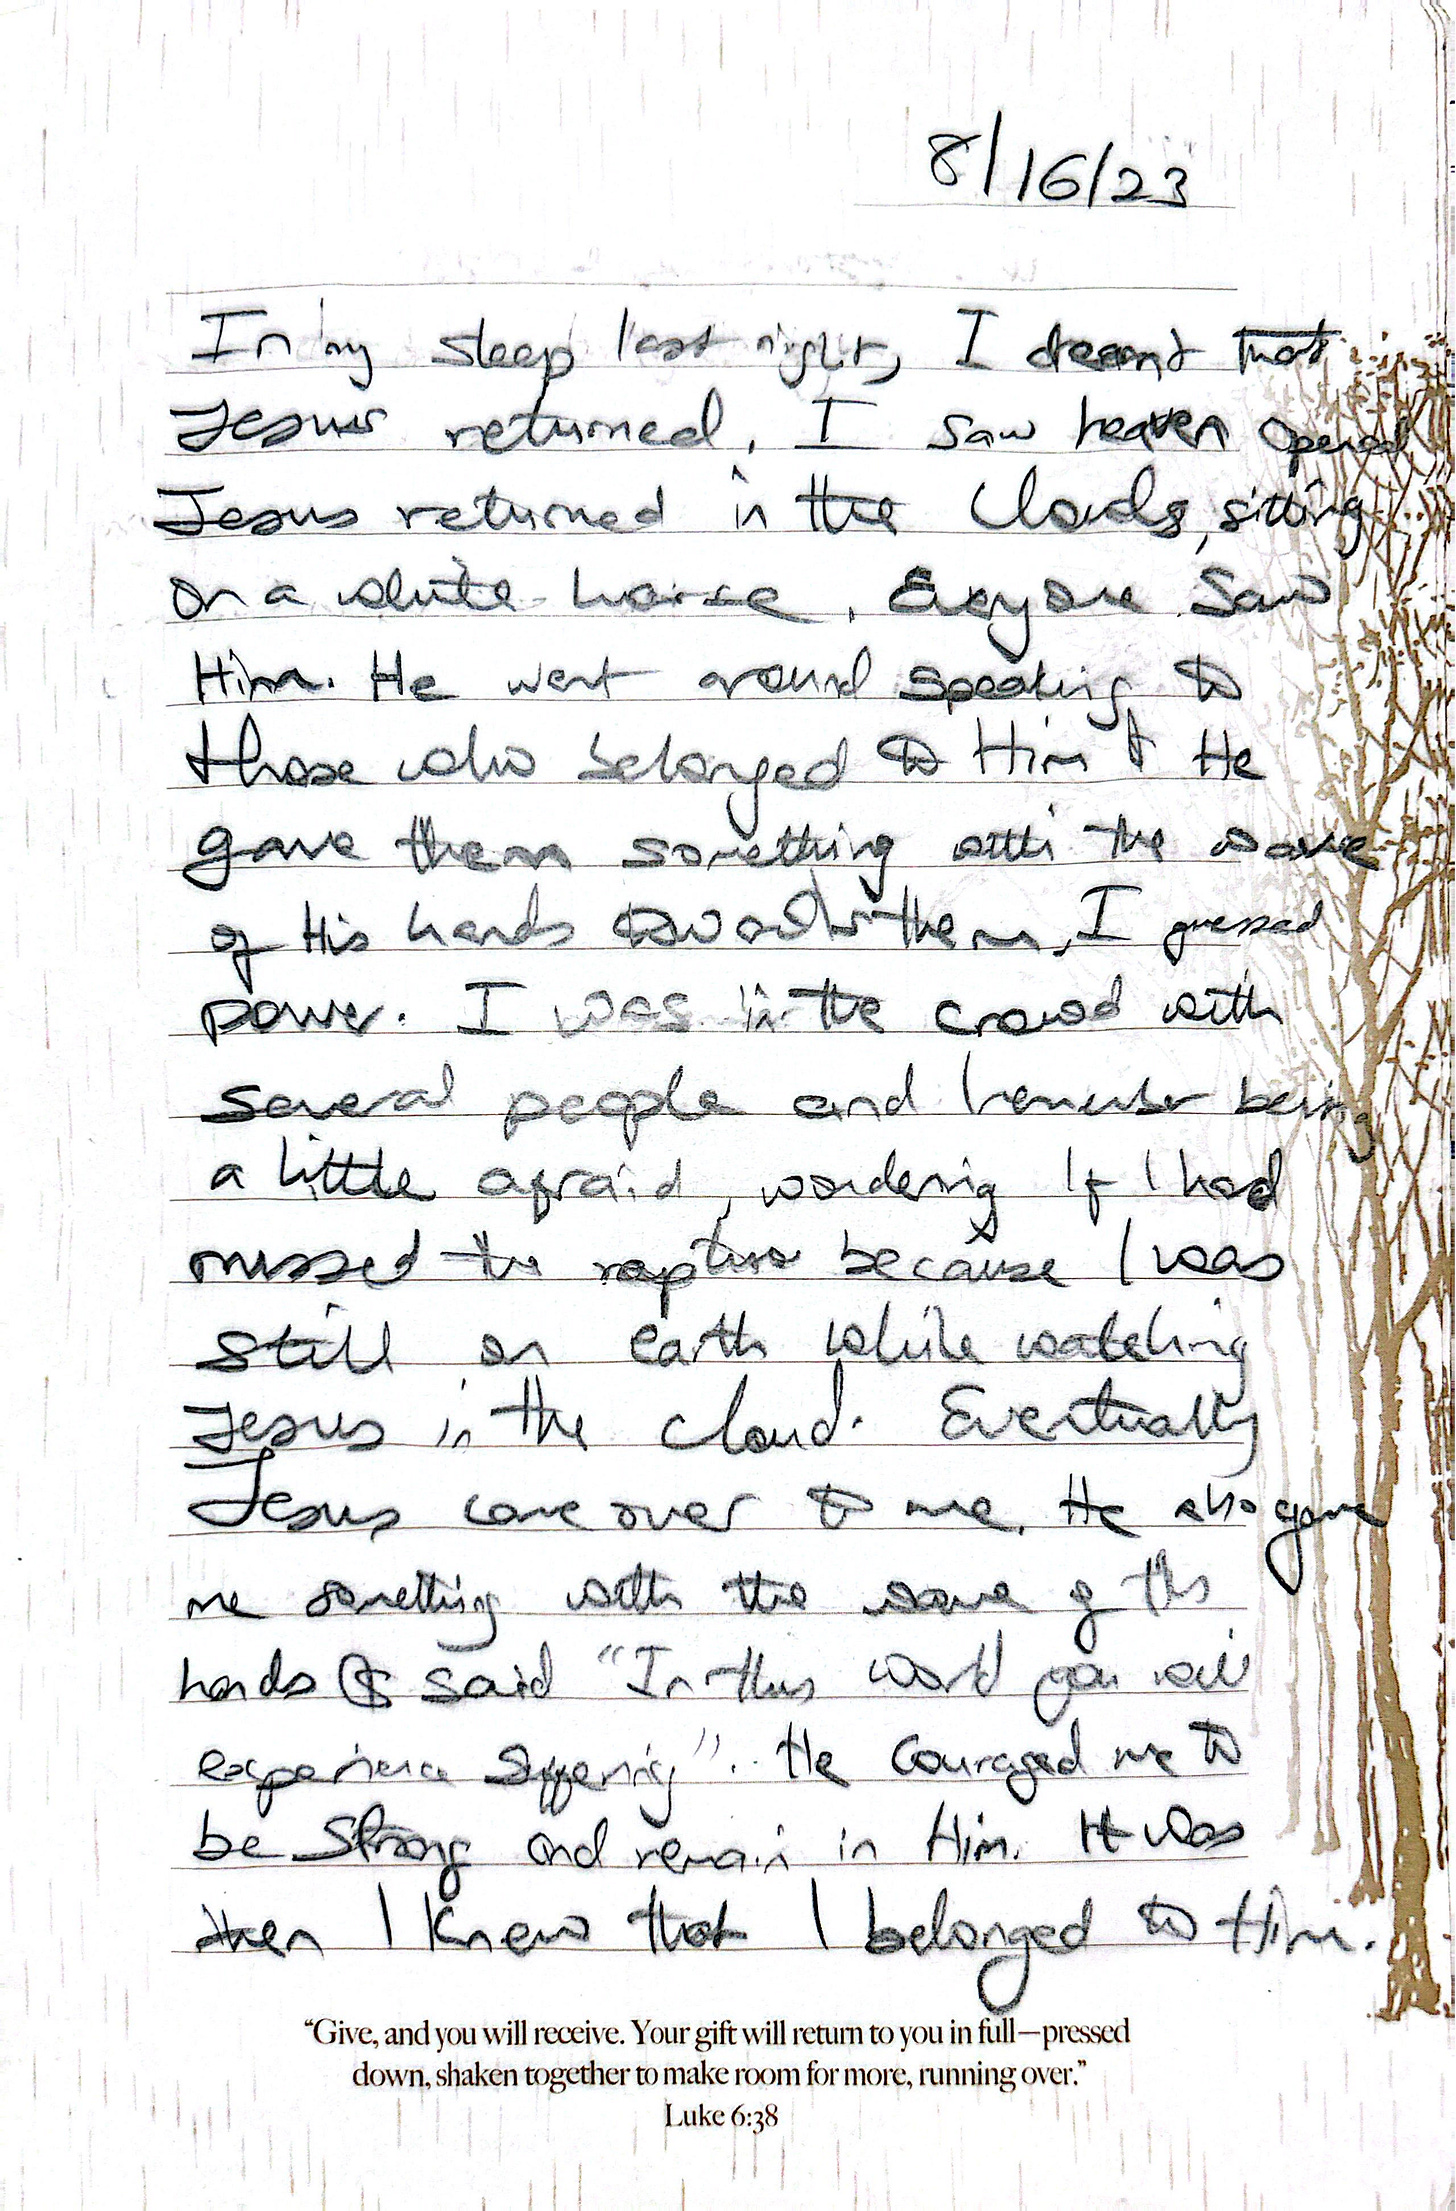 8/16/23
In my sleep last night, I dreamt that
Jesus returned. I saw heaven opened
Jesus returned in the Clouds, sitting
on a white horse. Everyone saw
Him. He went around speaking to
those who belonged to Him & He
gave them something with the wave
of His hands toward them, I guessed
power. I was in the crowd with
several people and I remember being
a little afraid, wondering If I had
missed the rapture because I was
still on earth while watching
Jesus in the cloud. Eventually
Jesus came over to me. He also gave
me something with the wave of His
hands & said "In this world you will
experience suffering". He couraged me to
be strong and remain in Him. It was
then I knew that I belonged to Him.
“Give, and you will receive. Your gift will return to you in full—pressed
down, shaken together to make room for more, running over.”
Luke 6:38